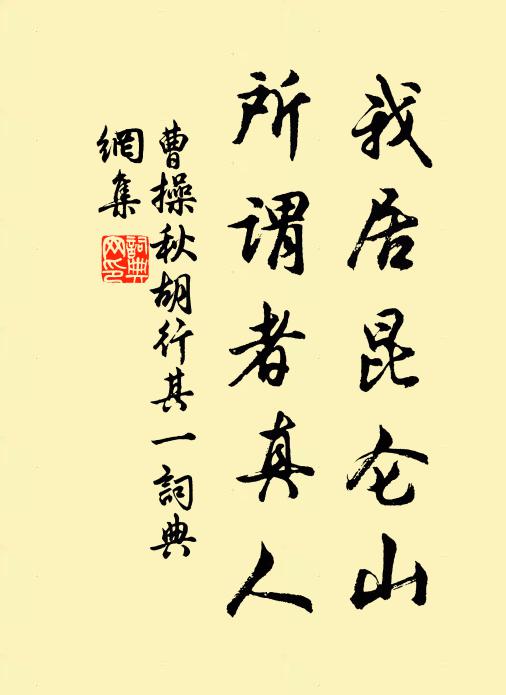 我居昆仑山
所谓者真人
曹操秋胡行其一詞典
網集
詞典网印